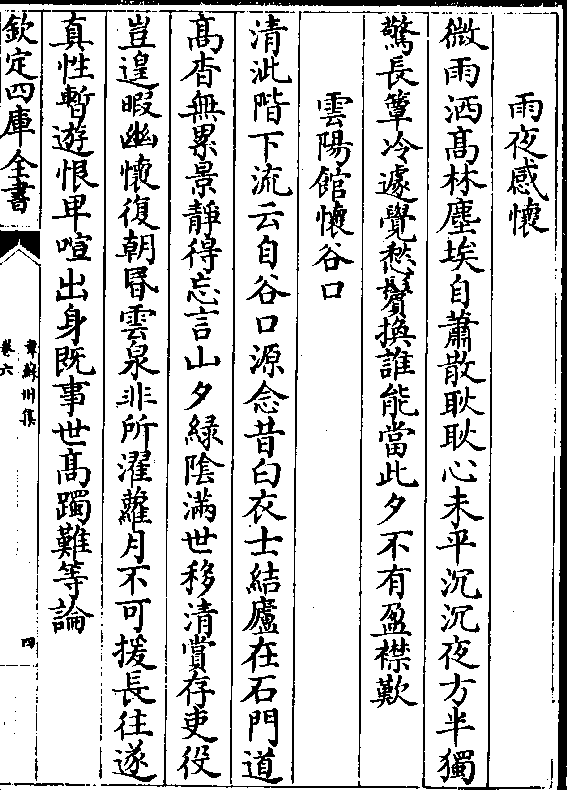 雨夜感懷
微雨洒髙林塵埃自蕭散耿耿心未平沉沉夜方半獨
驚長簟冷遽覺愁鬢換誰能當此夕不有盈襟歎
雲陽館懷谷口
清泚階下流云自谷口源念昔白衣士結廬在石門道
髙杳無累景靜得忘言山夕綠陰滿世移清賞存吏役
豈遑暇幽懷復朝昏雲泉非所濯蘿月不可援長往遂
真性暫遊恨卑喧出身既事世髙躅難等論
欽定四庫全書
韋蘇州集
卷六
四